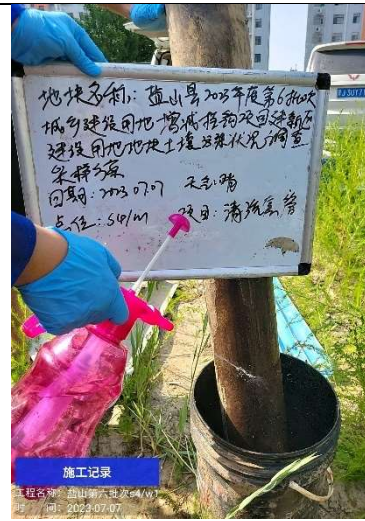 地块名称：盐山县2023年度第6批次
城乡建设用地增减挂钩项目建新区
建设用地地块土壤污染状况调查
采样
日期：2023.07.07 天气：晴
点位：S4/W1 项目：清洗套管
施工记录
工程名称：盐山第六批次s4/w1
时 间：2023-07-07